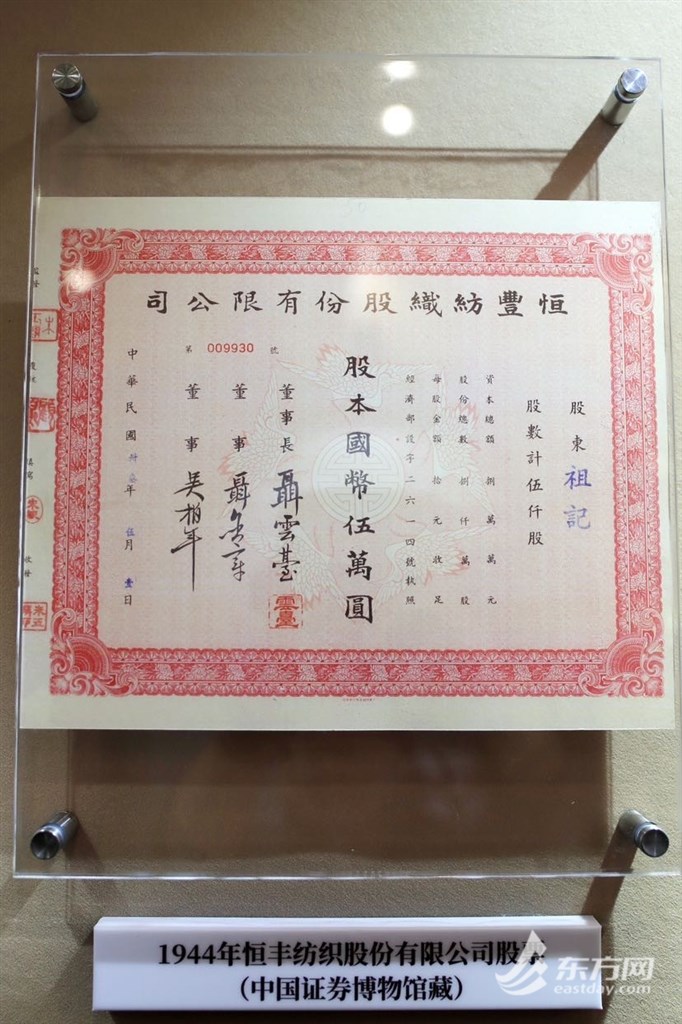 恒豐紡織股份有限公司
股東 祖記
股數計伍仟股
資本總額 捌萬萬元
股份總數 捌仟萬股
每股金額 拾元收足
經濟部設字二六一四號執照
股本國幣伍萬圓
董事長 聶雲臺
雲臺
董事 聶
董事 吳柏年
第 009930 號
中華民國卅年伍月壹日
1944年恒丰纺织股份有限公司股票
(中国证券博物馆藏)
东方网
eastday.com